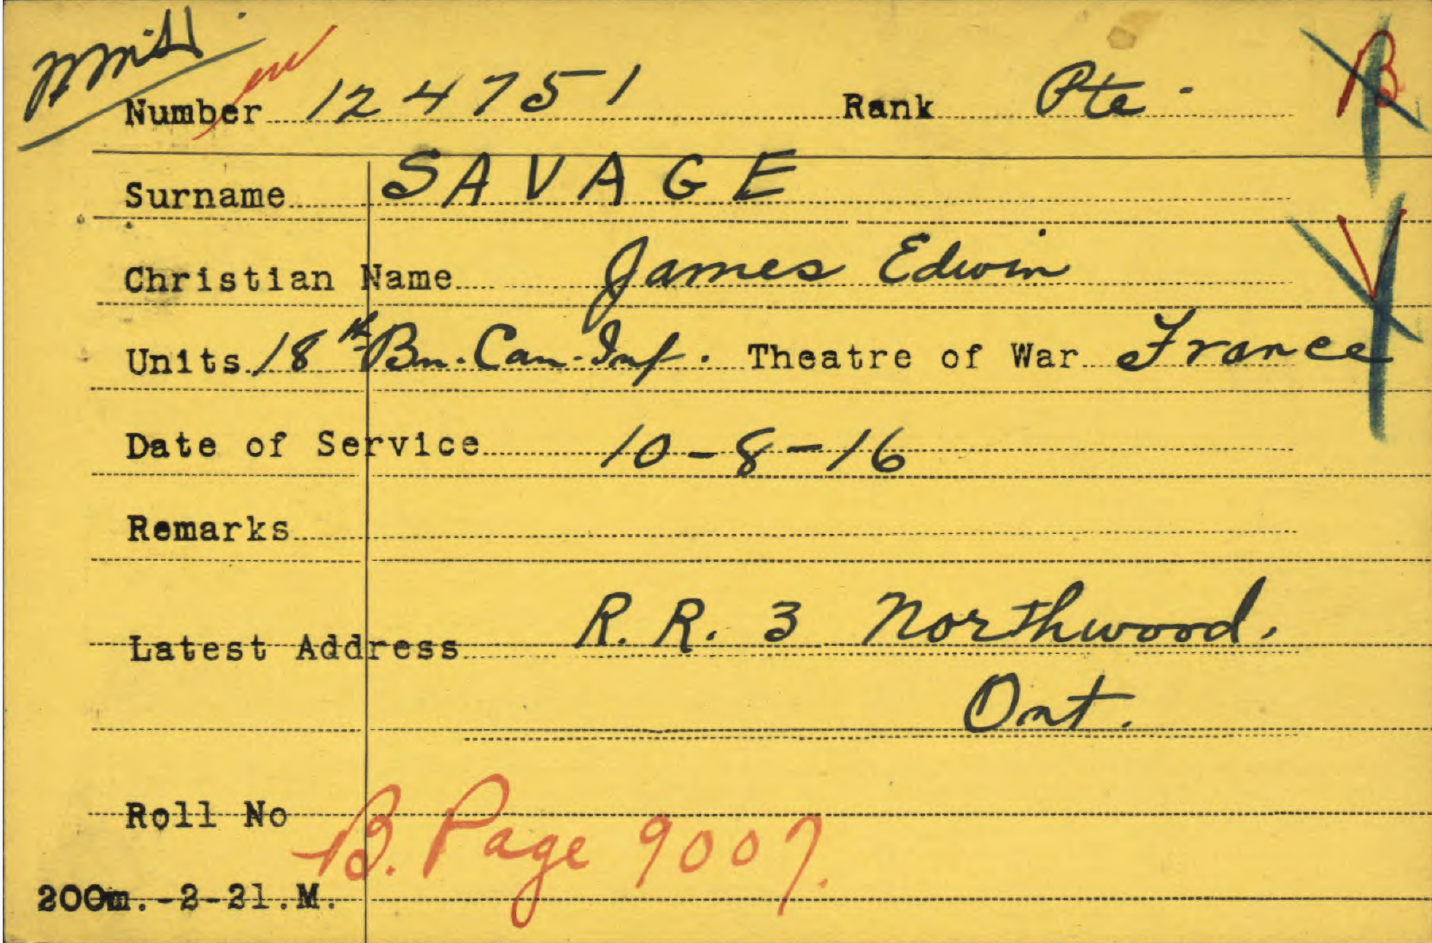 Number 124751 Rank Pte.
B
Surname SAVAGE
Christian Name James Edwin
V
Units 18th Bn. Can. Inf. Theatre of War France
Date of Service 10-8-16
Remarks
Latest Address R. R. 3 Northwood.
Ont.
Roll No B. Page 9007.
200m.-2-21.M.